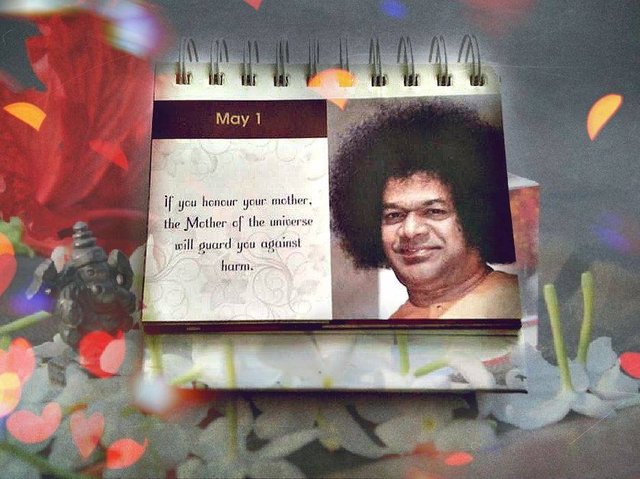 May 1
If you honour your mother,
the Mother of the universe
will guard you against
harm.